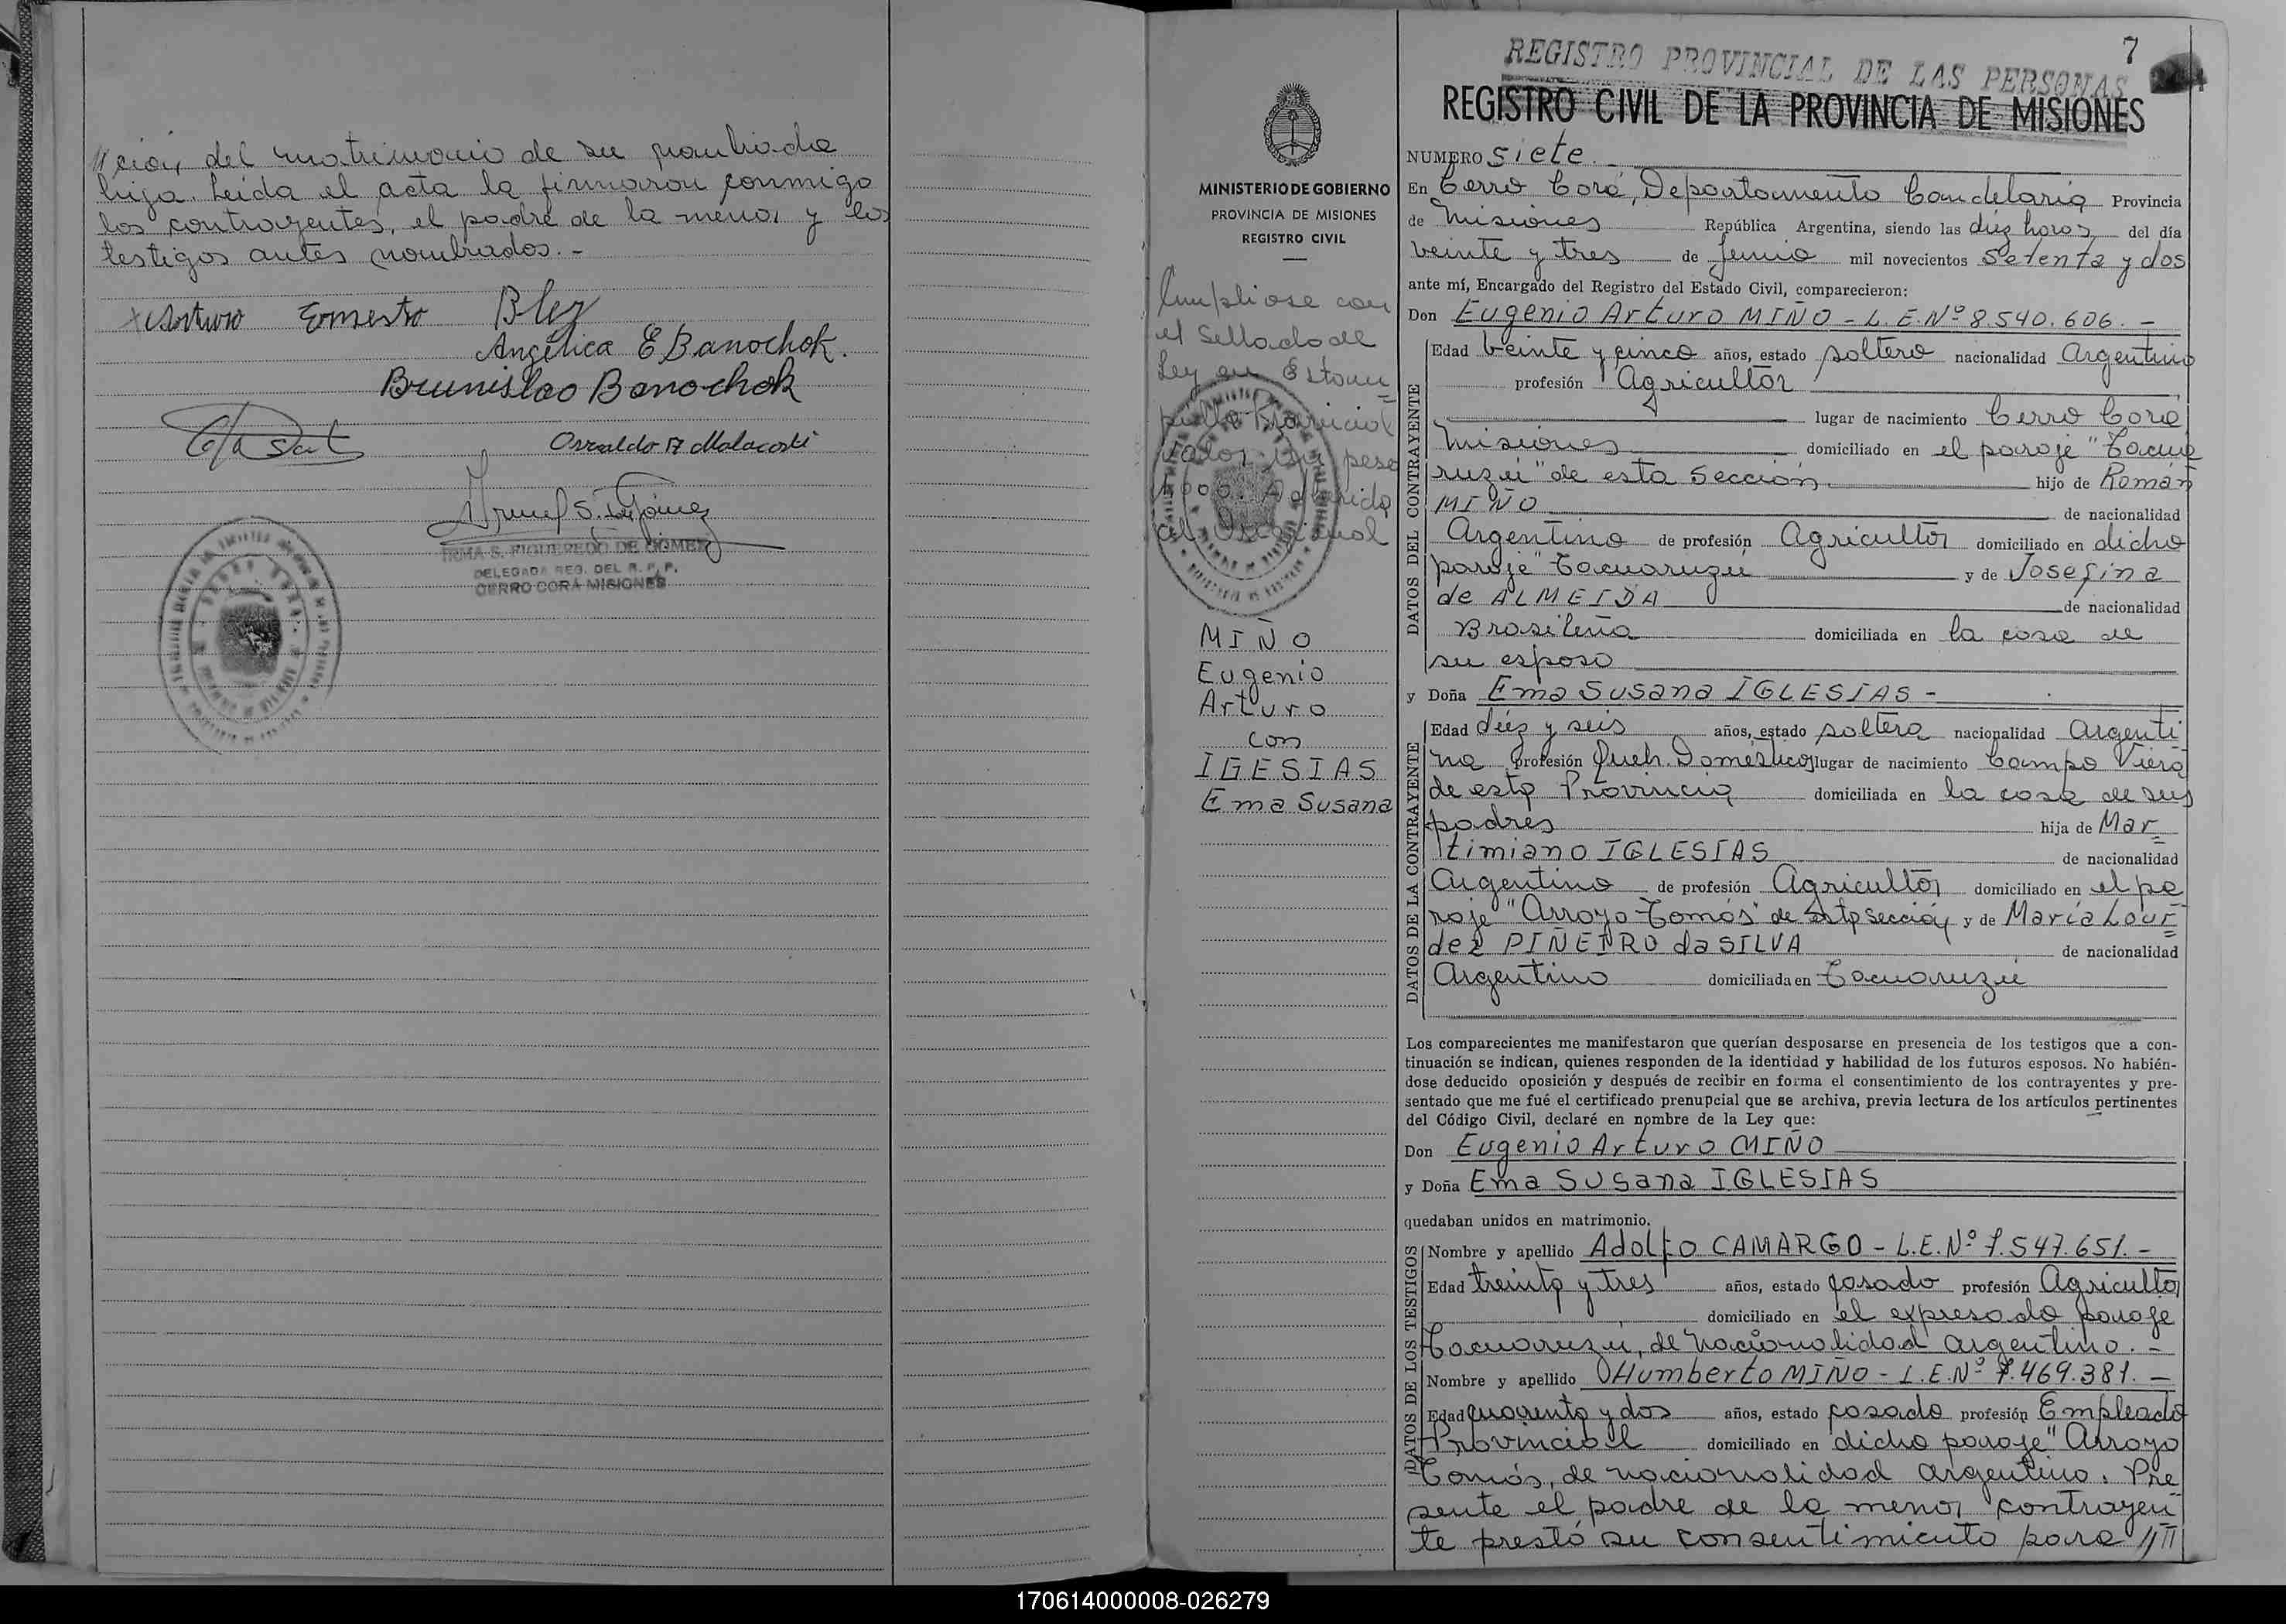 //ción del matrimonio de su nombrada
hija. Leída el acta la firmaron conmigo
los contrayentes, el padre de la menor y los
testigos antes nombrados.-
Arturo Ernesto Blez
Angélica E Banochok.
Brunislao Banochok
Osvaldo A Malacosti
IRMA S. FIGUEREDO DE GOMEZ
DELEGADA REG. DEL R. P. P.
CERRO CORÁ MISIONES
MINISTERIO DE GOBIERNO
PROVINCIA DE MISIONES
REGISTRO CIVIL
Cumpliose con
el Sellado de
Ley en Estam=
pilla Provincial
Valor Un peso
Adherido
al Original
MIÑO
Eugenio
Arturo
con
IGESIAS
Ema Susana
7
REGISTRO PROVINCIAL DE LAS PERSONAS
REGISTRO CIVIL DE LA PROVINCIA DE MISIONES
NUMERO siete.-
En Cerro Corá, Departamento Candelaria Provincia
de Misiones República Argentina, siendo las diez horas del día
veinte y tres de Junio mil novecientos Setenta y dos
ante mí, Encargado del Registro del Estado Civil, comparecieron:
Don Eugenio Arturo MIÑO - L.E.Nº 8.540.606.-
DATOS DEL CONTRAYENTE
Edad veinte y cinco años, estado soltero nacionalidad Argentino
profesión Agricultor
lugar de nacimiento Cerro Corá
Misiones domiciliado en el paraje "Tacua
ruzú" de esta Sección hijo de Román
MIÑO de nacionalidad
Argentino de profesión Agricultor domiciliado en dicho
paraje "Tacuaruzú y de Josefina
de ALMEIDA de nacionalidad
Brasileña domiciliada en la casa de
su esposo
y Doña Ema Susana IGLESIAS -
DATOS DE LA CONTRAYENTE
Edad diez y seis años, estado soltera nacionalidad Argenti
na profesión Queh. Domésticos lugar de nacimiento Campo Viera
de esta Provincia domiciliada en la casa de sus
padres hija de Mar=
timiano IGLESIAS de nacionalidad
Argentino de profesión Agricultor domiciliado en el pa
raje "Arroyo Tomás" de esta Sección y de María Lour=
dez PIÑEIRO da SILVA de nacionalidad
Argentino domiciliada en Tacuaruzú
Los comparecientes me manifestaron que querían desposarse en presencia de los testigos que a con-
tinuación se indican, quienes responden de la identidad y habilidad de los futuros esposos. No habién-
dose deducido oposición y después de recibir en forma el consentimiento de los contrayentes y pre-
sentado que me fué el certificado prenupcial que se archiva, previa lectura de los artículos pertinentes
del Código Civil, declaré en nombre de la Ley que:
Don Eugenio Arturo MIÑO
y Doña Ema Susana IGLESIAS
quedaban unidos en matrimonio.
DATOS DE LOS TESTIGOS
Nombre y apellido Adolfo CAMARGO - L.E.Nº 7.547.651.-
Edad treinta y tres años, estado casado profesión Agricultor
domiciliado en el expresado paraje
Tacuaruzú, de nacionalidad argentino.-
Nombre y apellido Humberto MIÑO - L.E.Nº 7.469.381.-
Edad cuarenta y dos años, estado casado profesión Empleado
Provincial domiciliado en dicho paraje "Arroyo
Tomás, de nacionalidad argentino. Pre
sente el padre de la menor contrayen
te prestó su consentimiento para //
170614000008-026279